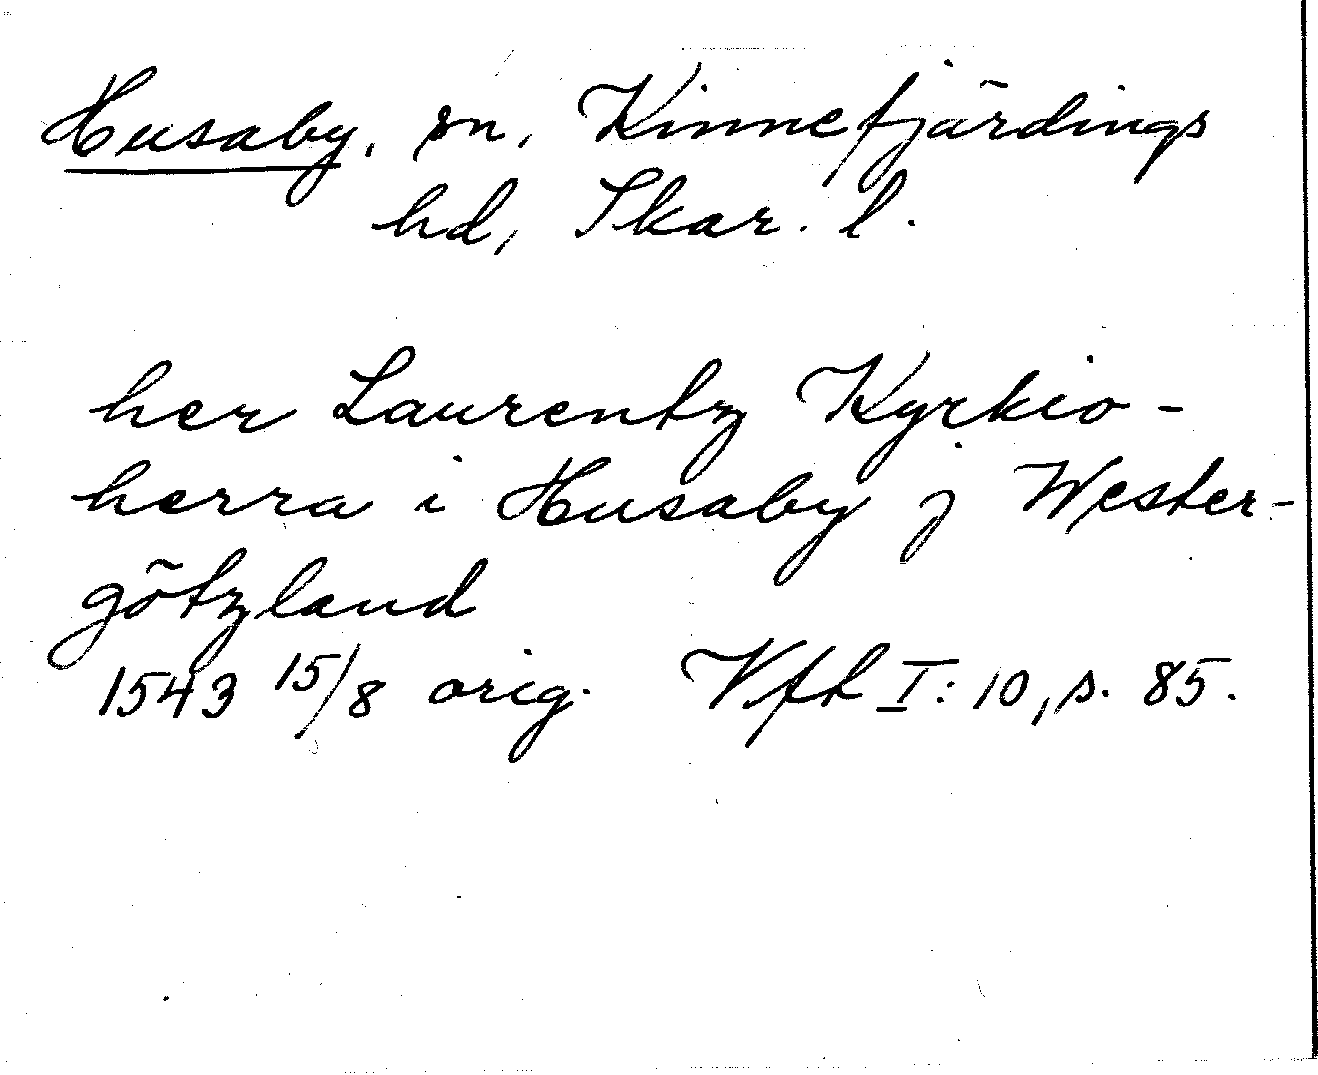 Husaby, sn, Kinnefjärdings
hd, Skar. l.
her Laurentz Kyrkio-
herra i Husaby j Wester-
götzland
1543 15/8 orig. Vft I: 10, s. 85.